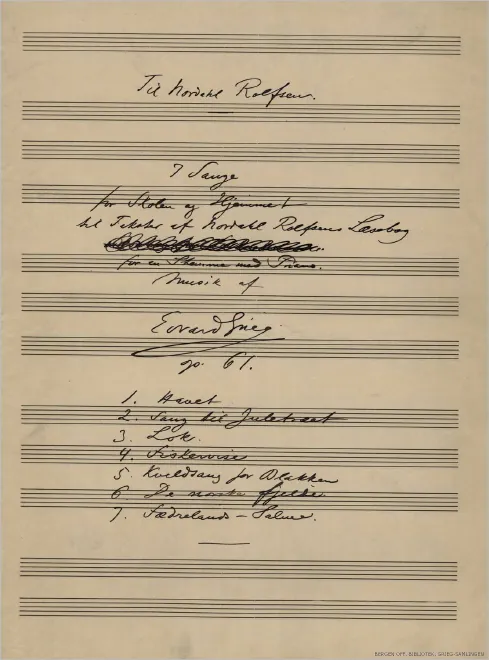 Til Nordahl Rolfsen.
7 Sange
for Skolen og Hjemmet
til Tekster af Nordahl Rolfsens Læsebog
for en Stemme med Piano.
Musik af
Edvard Grieg.
op. 61.
1. Havet
2. Sang til Juletræet
3. Lok.
4. Fiskervise
5. Kveldsang for Blakken
6. De norske fjelde.
7. Fædrelands-Salme.
BERGEN OFF. BIBLIOTEK, GRIEG-SAMLINGEN